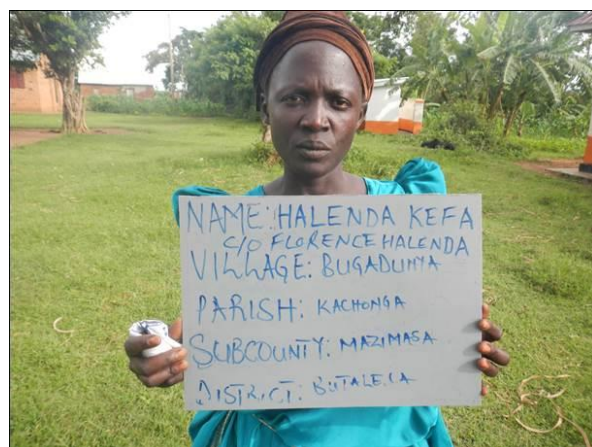 NAME: HALENDA KEFA
C/O FLORENCE HALENDA
VILLAGE: BUGADUNYA
PARISH: KACHONGA
SUBCOUNTY: MAZIMASA
DISTRICT: BUTALEJA